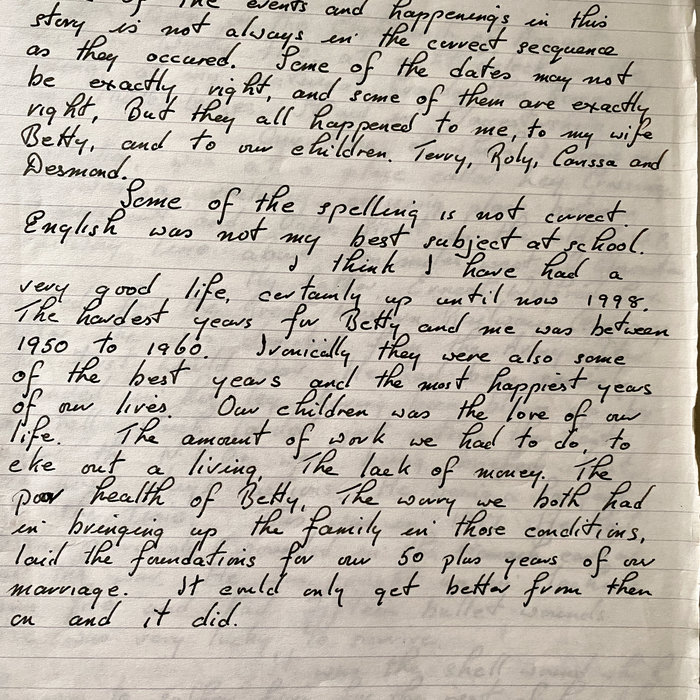 of the events and happenings in this
story is not always in the correct secquence
as they occured. Some of the dates may not
be exactly right, and some of them are exactly
right, But they all happened to me, to my wife
Betty, and to our children. Terry, Roly, Carissa and
Desmond.
Some of the spelling is not correct.
English was not my best subject at school.
I think I have had a
very good life, certainly up until now 1998.
The hardest years for Betty and me was between
1950 to 1960. Ironically they were also some
of the best years and the most happiest years
of our lives. Our children was the love of our
life. The amount of work we had to do, to
eke out a living, The lack of money. The
poor health of Betty, The worry we both had
in bringing up the family in those conditions,
laid the foundations for our 50 plus years of our
marriage. It could only get better from then
on and it did.